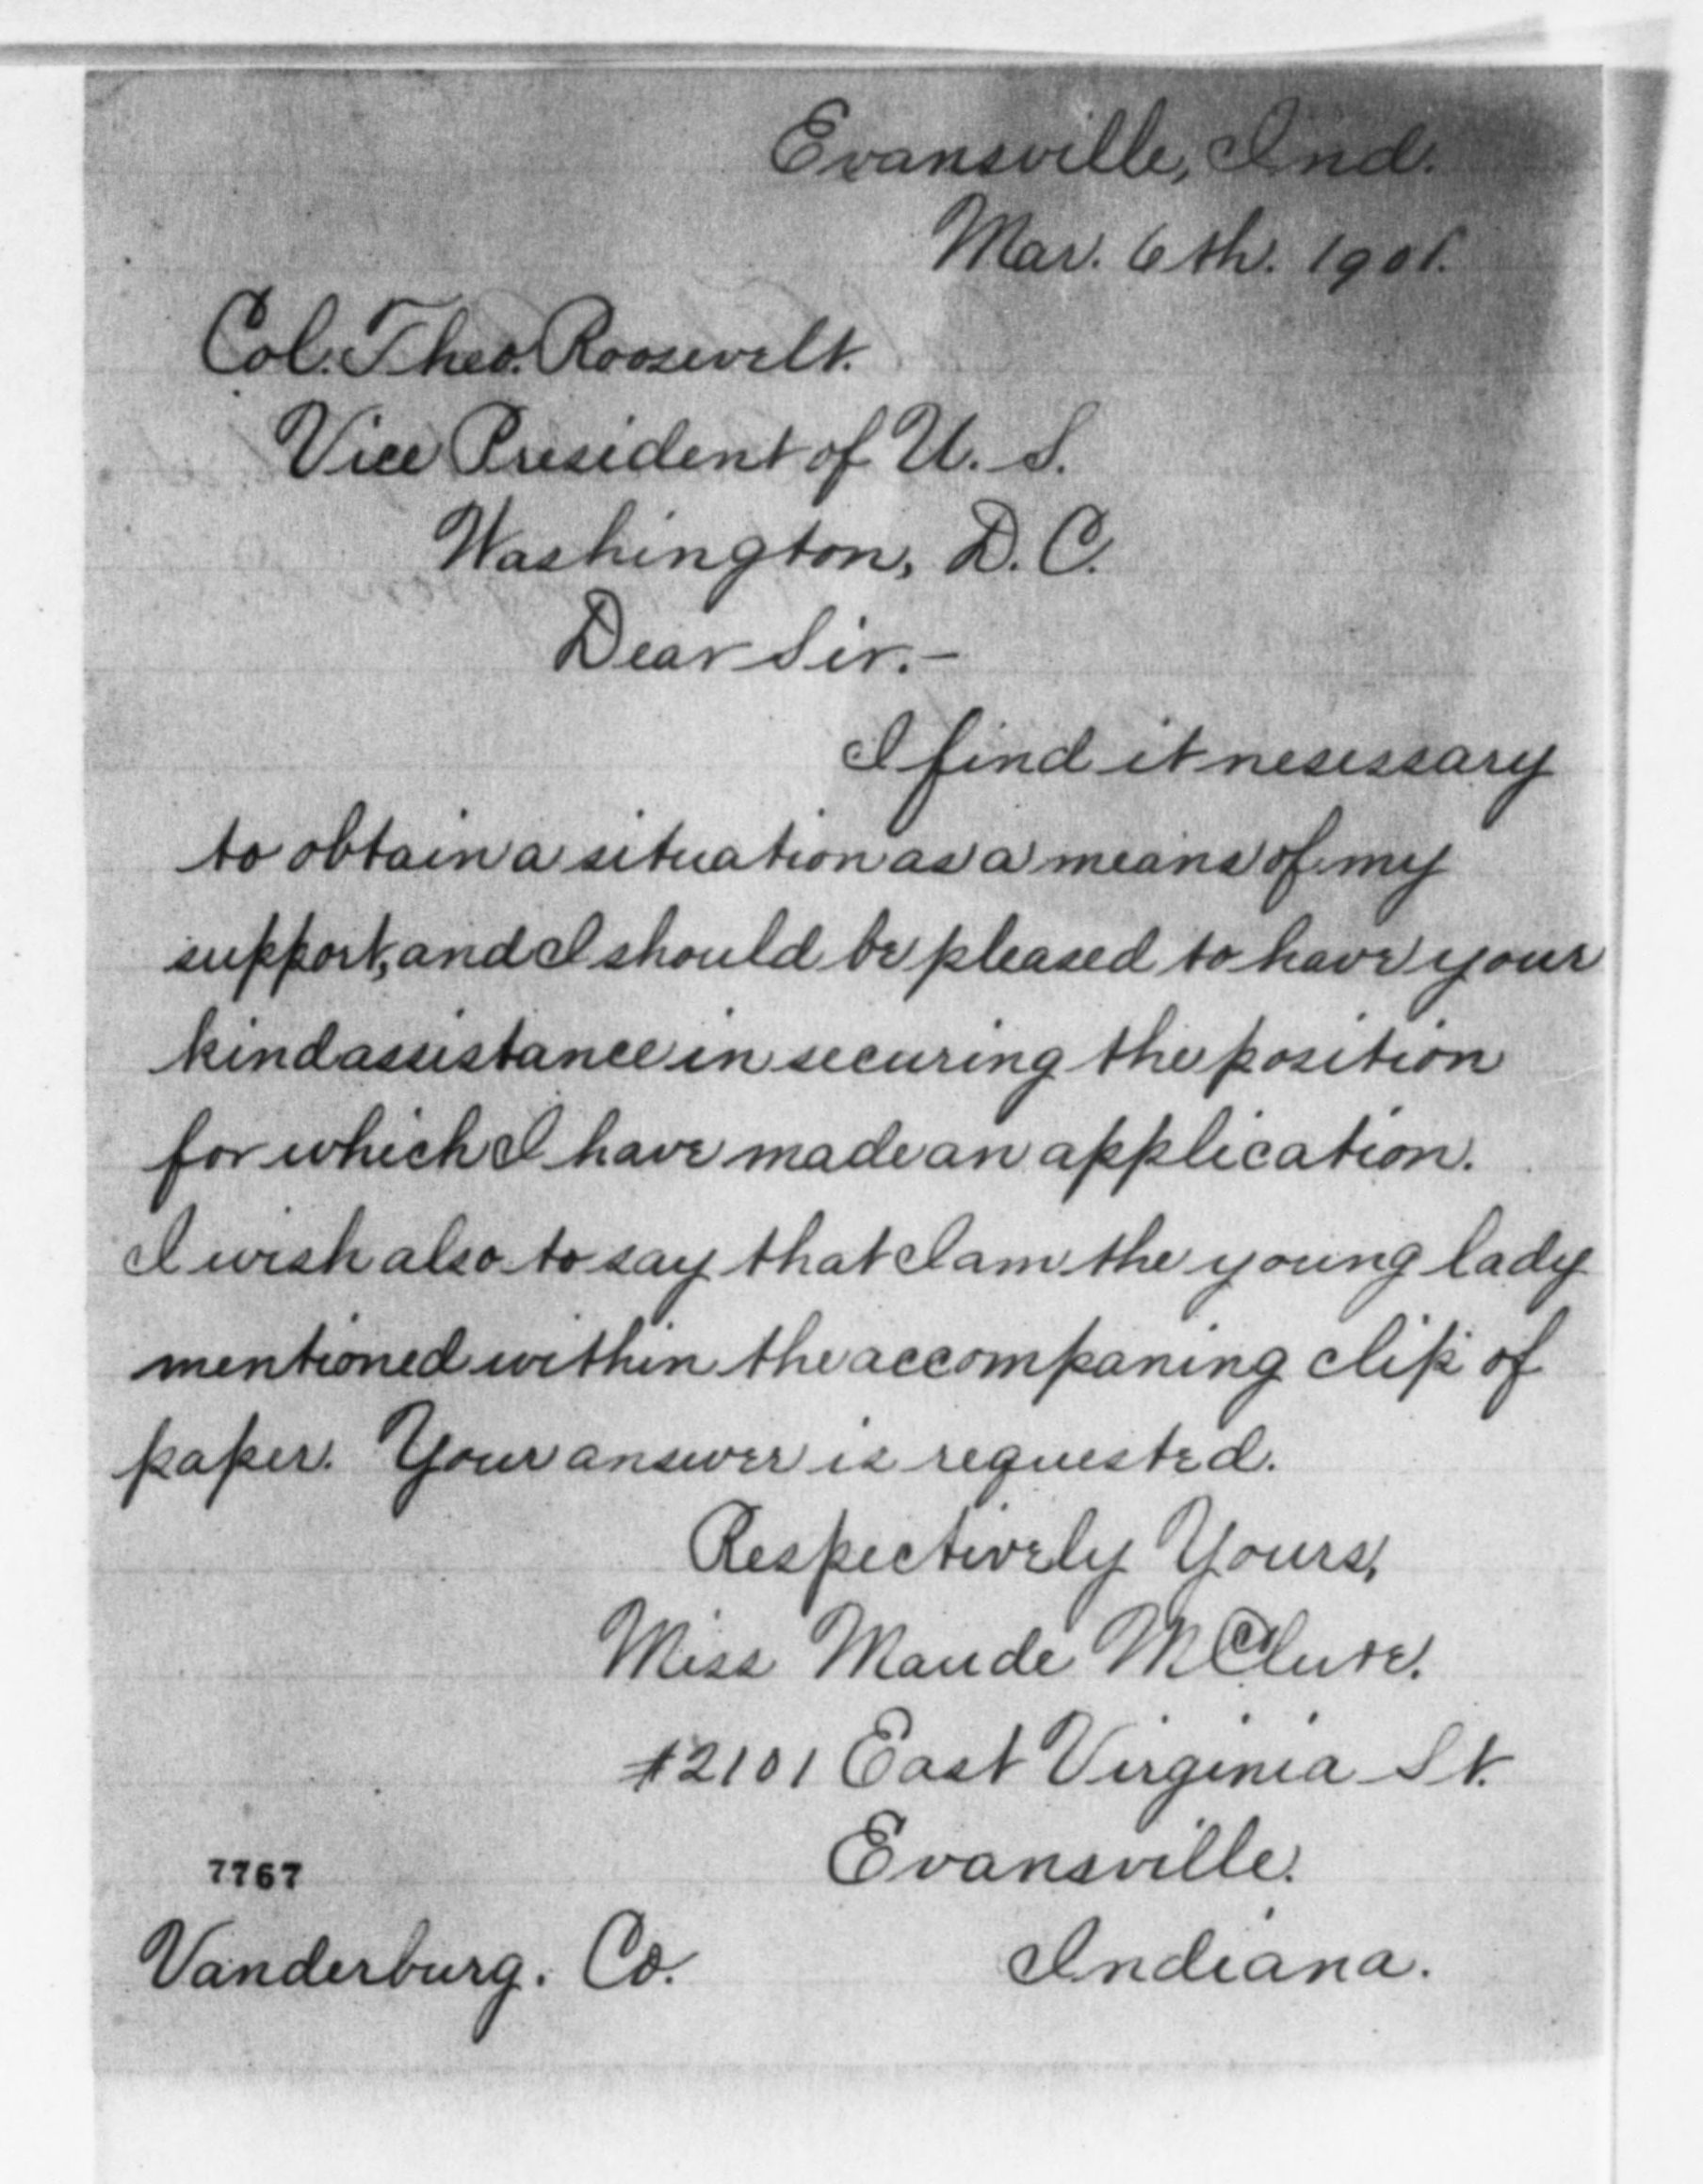 Evansville, Ind.
Mar. 6th. 1901.
Col. Theo. Roosevelt.
Vice President of U. S.
Washington, D. C.
Dear Sir.-
I find it nesessary
to obtain a situation as a means of my
support, and I should be pleased to have your
kind assistance in securing the position
for which I have made an application.
I wish also to say that I am the young lady
mentioned within the accompaning clip of
paper. Your answer is requested.
Respectively Yours,
Miss Maude McClure.
#2101 East Virginia St.
Evansville.
7767
Vanderburg. Co. Indiana.